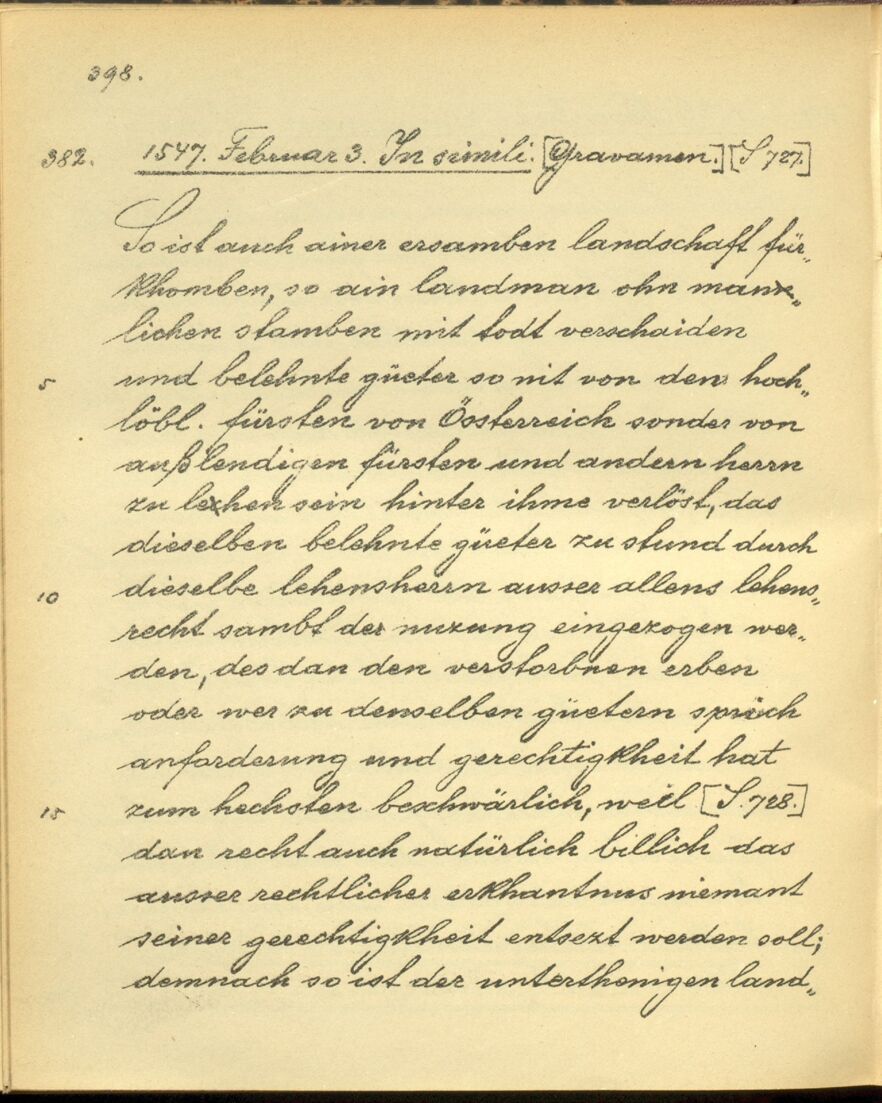 398.
382. 1547. Februar 3. In simili. [Gravamen.] [S. 727.]
So ist auch ainer ersamben landschaft für„
khomben, so ain landman ohn man„
lichen stamben mit todt verschaiden
5 und belehnte güeter so nit von den hoch„
löbl. fürsten von Össterreich sonder von
außlendigen fürsten und andern herrn
zu lehen sein hinter ihme verlöst, das
dieselben belehnte güeter zu stund durch
10 dieselbe lehensherrn ausser allens lehens„
recht sambt der nuzung eingezogen wer„
den, des dan den verstorbnen erben
oder wer zu denselben güetern sprüch
anforderung und gerechtigkheit hat
15 zum hechsten beschwärlich, weil [S. 728.]
dan recht auch natürlich billich das
ausser rechtlicher erkhantnus niemant
seiner gerechtigkheit entsezt werden soll;
demnach so ist der unterthenigen land„